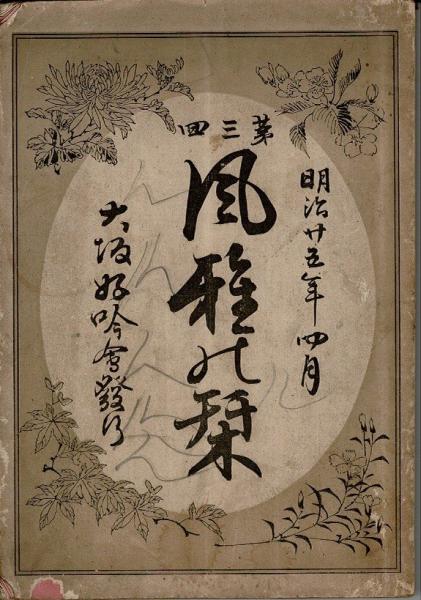 明治廿五年四月
第三四
風雅の栞
大坂好吟會發行